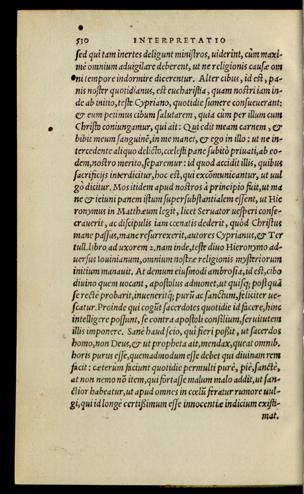 530 INTERPRETATIO
sed qui tam inertes deligunt ministros, uiderint, cùm maxi-
mè omnium aduigilare deberent, ut ne religionis causæ om
ni tempore indormire dicerentur. Alter cibus, id est, pa-
nis noster quotidianus, est eucharistia, quam nostri iam in-
de ab initio, teste Cypriano, quotidie sumere consueuerant:
& eum petimus cibum salutarem, quia cùm per illum cum
Christo coniungamur, qui ait: Qui edit meam carnem, &
bibit meum sanguinē, in me manet, & ego in illo: ut ne in-
tercedente aliquo delicto, cælesti pane subitò priuati, ab eo-
dem, nostro merito, separemur: id quod accidit illis, quibus
sacrificijs interdicitur, hoc est, qui excōmunicantur, ut uul
gò dicitur. Mos itidem apud nostros à principio fuit, ut ma
ne & ieiuni panem istum supersubstantialem essent, ut Hie
ronymus in Matthæum legit, licet Seruator uesperi conse-
crauerit, ac discipulis iam cœnatis dederit, quòd Christus
mane passus, mane resurrexerit, autores Cyprianus, & Ter
tull. libro ad uxorem 2. nam inde, teste diuo Hieronymo ad-
uersus Iouinianum, omnium nostræ religionis mysteriorum
initium manauit. At demum eiusmodi ambrosia, id est, cibo
diuino quem uocant, apostolus admonet, ut quisq; postquā
se rectè probarit, inueneritq; purū ac sanctum, feliciter ue-
scatur. Proinde qui cogūt sacerdotes quotidie id facere, hinc
intelligere possunt, se contra apostoli consilium, seruitutem
illis imponere. Sanè haud scio, qui fieri possit, ut sacerdos
homo, non Deus, & ut propheta ait, mendax, queat omnib.
horis purus esse, quemadmodum esse debet qui diuinam rem
facit: cæterùm faciunt quotidie permulti purè, piè, sanctè,
at non nemo nō item, qui fortasse malum malo addit, ut san-
ctior habeatur, ut apud omnes in cœlū feratur rumore uul-
gi, qui id longè certißimum esse innocentiæ indicium existi-
mat.